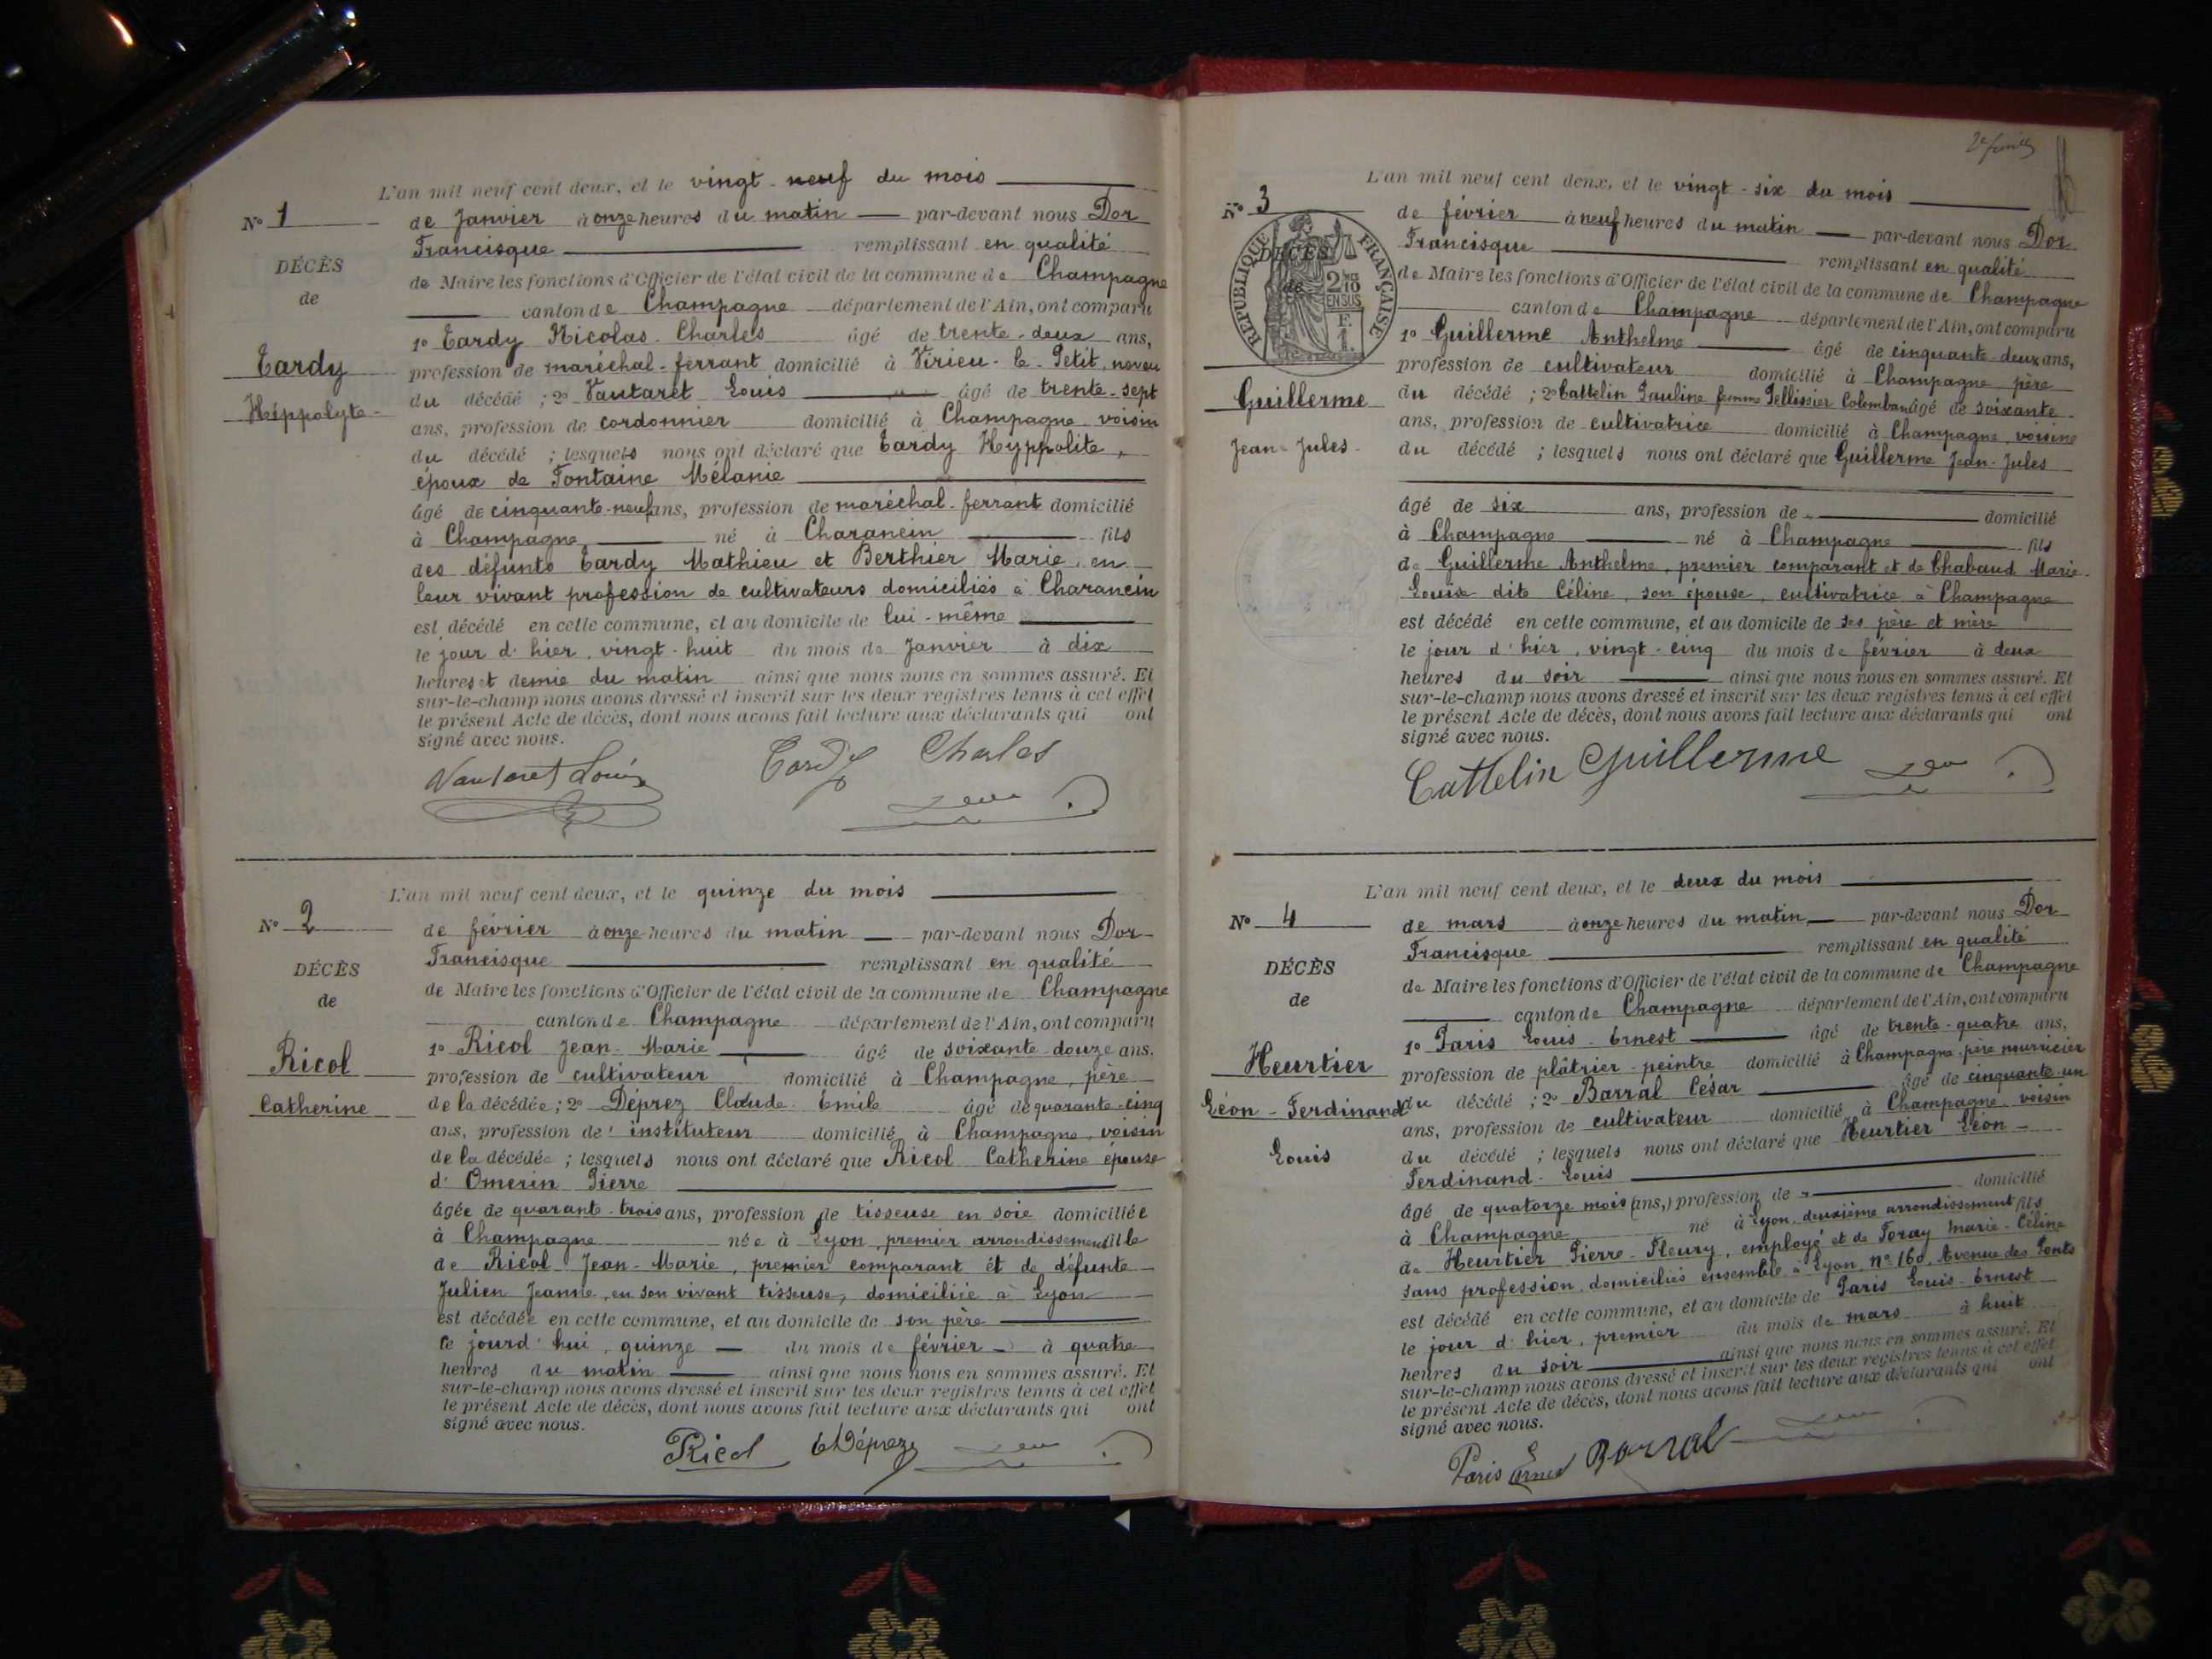 L'an mil neuf cent deux, et le vingt-neuf du mois
Nº 1
de Janvier à onze heures du matin par-devant nous Dor
Francisque remplissant en qualité
DÉCÈS
de Maire les fonctions d'Officier de l'état civil de la commune de Champagne
de
canton de Champagne département de l'Ain, ont comparu
1º Tardy Nicolas-Charles âgé de trente-deux ans,
Tardy
profession de maréchal-ferrant domicilié à Virieu-le-Petit, neveu
du décédé ; 2º Vautaret Louis âgé de trente-sept
Hippolyte
ans, profession de cordonnier domicilié à Champagne voisin
du décédé ; lesquels nous ont déclaré que Tardy Hyppolite,
époux de Fontaine Mélanie
âgé de cinquante-neuf ans, profession de maréchal-ferrant domicilié
à Champagne né à Charancin fils
des défunts Tardy Mathieu et Berthier Marie, en
leur vivant profession de cultivateurs domiciliés à Charancin
est décédé en cette commune, et au domicile de lui-même
le jour d'hier, vingt-huit du mois de Janvier à dix
heures et demie du matin ainsi que nous nous en sommes assuré. Et
sur-le-champ nous avons dressé et inscrit sur les deux registres tenus à cet effet
le présent Acte de décès, dont nous avons fait lecture aux déclarants qui ont
signé avec nous.
Vautaret Louis Tardy Charles
L'an mil neuf cent deux, et le quinze du mois
Nº 2
de février à onze heures du matin par-devant nous Dor
Francisque remplissant en qualité
DÉCÈS
de Maire les fonctions d'Officier de l'état civil de la commune de Champagne
de
canton de Champagne département de l'Ain, ont comparu
1º Ricol Jean-Marie âgé de soixante-douze ans,
Ricol
profession de cultivateur domicilié à Champagne, père
Catherine
de la décédée ; 2º Déprez Claude-Emile âgé de quarante-cinq
ans, profession de instituteur domicilié à Champagne, voisin
de la décédée ; lesquels nous ont déclaré que Ricol Catherine épouse
d'Omerin Pierre
âgée de quarante-trois ans, profession de tisseuse en soie domiciliée
à Champagne née à Lyon, premier arrondissement fille
de Ricol Jean-Marie, premier comparant et de défunte
Julien Jeanne, en son vivant tisseuse, domiciliée à Lyon
est décédée en cette commune, et au domicile de son père
le jourd'hui, quinze du mois de février à quatre
heures du matin ainsi que nous nous en sommes assuré. Et
sur-le-champ nous avons dressé et inscrit sur les deux registres tenus à cet effet
le présent Acte de décès, dont nous avons fait lecture aux déclarants qui ont
signé avec nous.
Ricol E Déprez
L'an mil neuf cent deux, et le vingt-six du mois
Nº 3
de février à neuf heures du matin par-devant nous Dor
Francisque remplissant en qualité
RÉPUBLIQUE FRANÇAISE
DÉCÈS
de
2/10 EN SUS
F. 1.
de Maire les fonctions d'Officier de l'état civil de la commune de Champagne
canton de Champagne département de l'Ain, ont comparu
1º Guillerme Anthelme âgé de cinquante-deux ans,
profession de cultivateur domicilié à Champagne père
Guillerme
du décédé ; 2º Cattelin Pauline femme Pellissier Colomban âgé de soixante
ans, profession de cultivatrice domicilié à Champagne, voisine
Jean-Jules
du décédé ; lesquels nous ont déclaré que Guillerme Jean-Jules
âgé de six ans, profession de domicilié
à Champagne né à Champagne fils
de Guillerme Anthelme, premier comparant et de Chabaud Marie-
Louise dite Céline, son épouse, cultivatrice à Champagne
est décédé en cette commune, et au domicile de ses père et mère
le jour d'hier, vingt-cinq du mois de février à deux
heures du soir ainsi que nous nous en sommes assuré. Et
sur-le-champ nous avons dressé et inscrit sur les deux registres tenus à cet effet
le présent Acte de décès, dont nous avons fait lecture aux déclarants qui ont
signé avec nous.
Cattelin Guillerme
L'an mil neuf cent deux, et le deux du mois
Nº 4
de mars à onze heures du matin par-devant nous Dor
Francisque remplissant en qualité
DÉCÈS
de Maire les fonctions d'Officier de l'état civil de la commune de Champagne
de
canton de Champagne département de l'Ain, ont comparu
1º Paris Louis-Ernest âgé de trente-quatre ans,
Heurtier
profession de plâtrier-peintre domicilié à Champagne père nourricier
Léon-Ferdinand
du décédé ; 2º Barral César âgé de cinquante-un
ans, profession de cultivateur domicilié à Champagne voisin
Louis
du décédé ; lesquels nous ont déclaré que Heurtier Léon-
Ferdinand-Louis
âgé de quatorze mois (ans,) profession de domicilié
à Champagne né à Lyon, deuxième arrondissement fils
de Heurtier Pierre-Fleury, employé et de Foray Marie-Céline
sans profession, domiciliés ensemble à Lyon, nº 160, Avenue des Ponts
est décédé en cette commune, et au domicile de Paris Louis-Ernest
le jour d'hier, premier du mois de mars à huit
heures du soir ainsi que nous nous en sommes assuré. Et
sur-le-champ nous avons dressé et inscrit sur les deux registres tenus à cet effet
le présent Acte de décès, dont nous avons fait lecture aux déclarants qui ont
signé avec nous.
Paris Ernest Barral